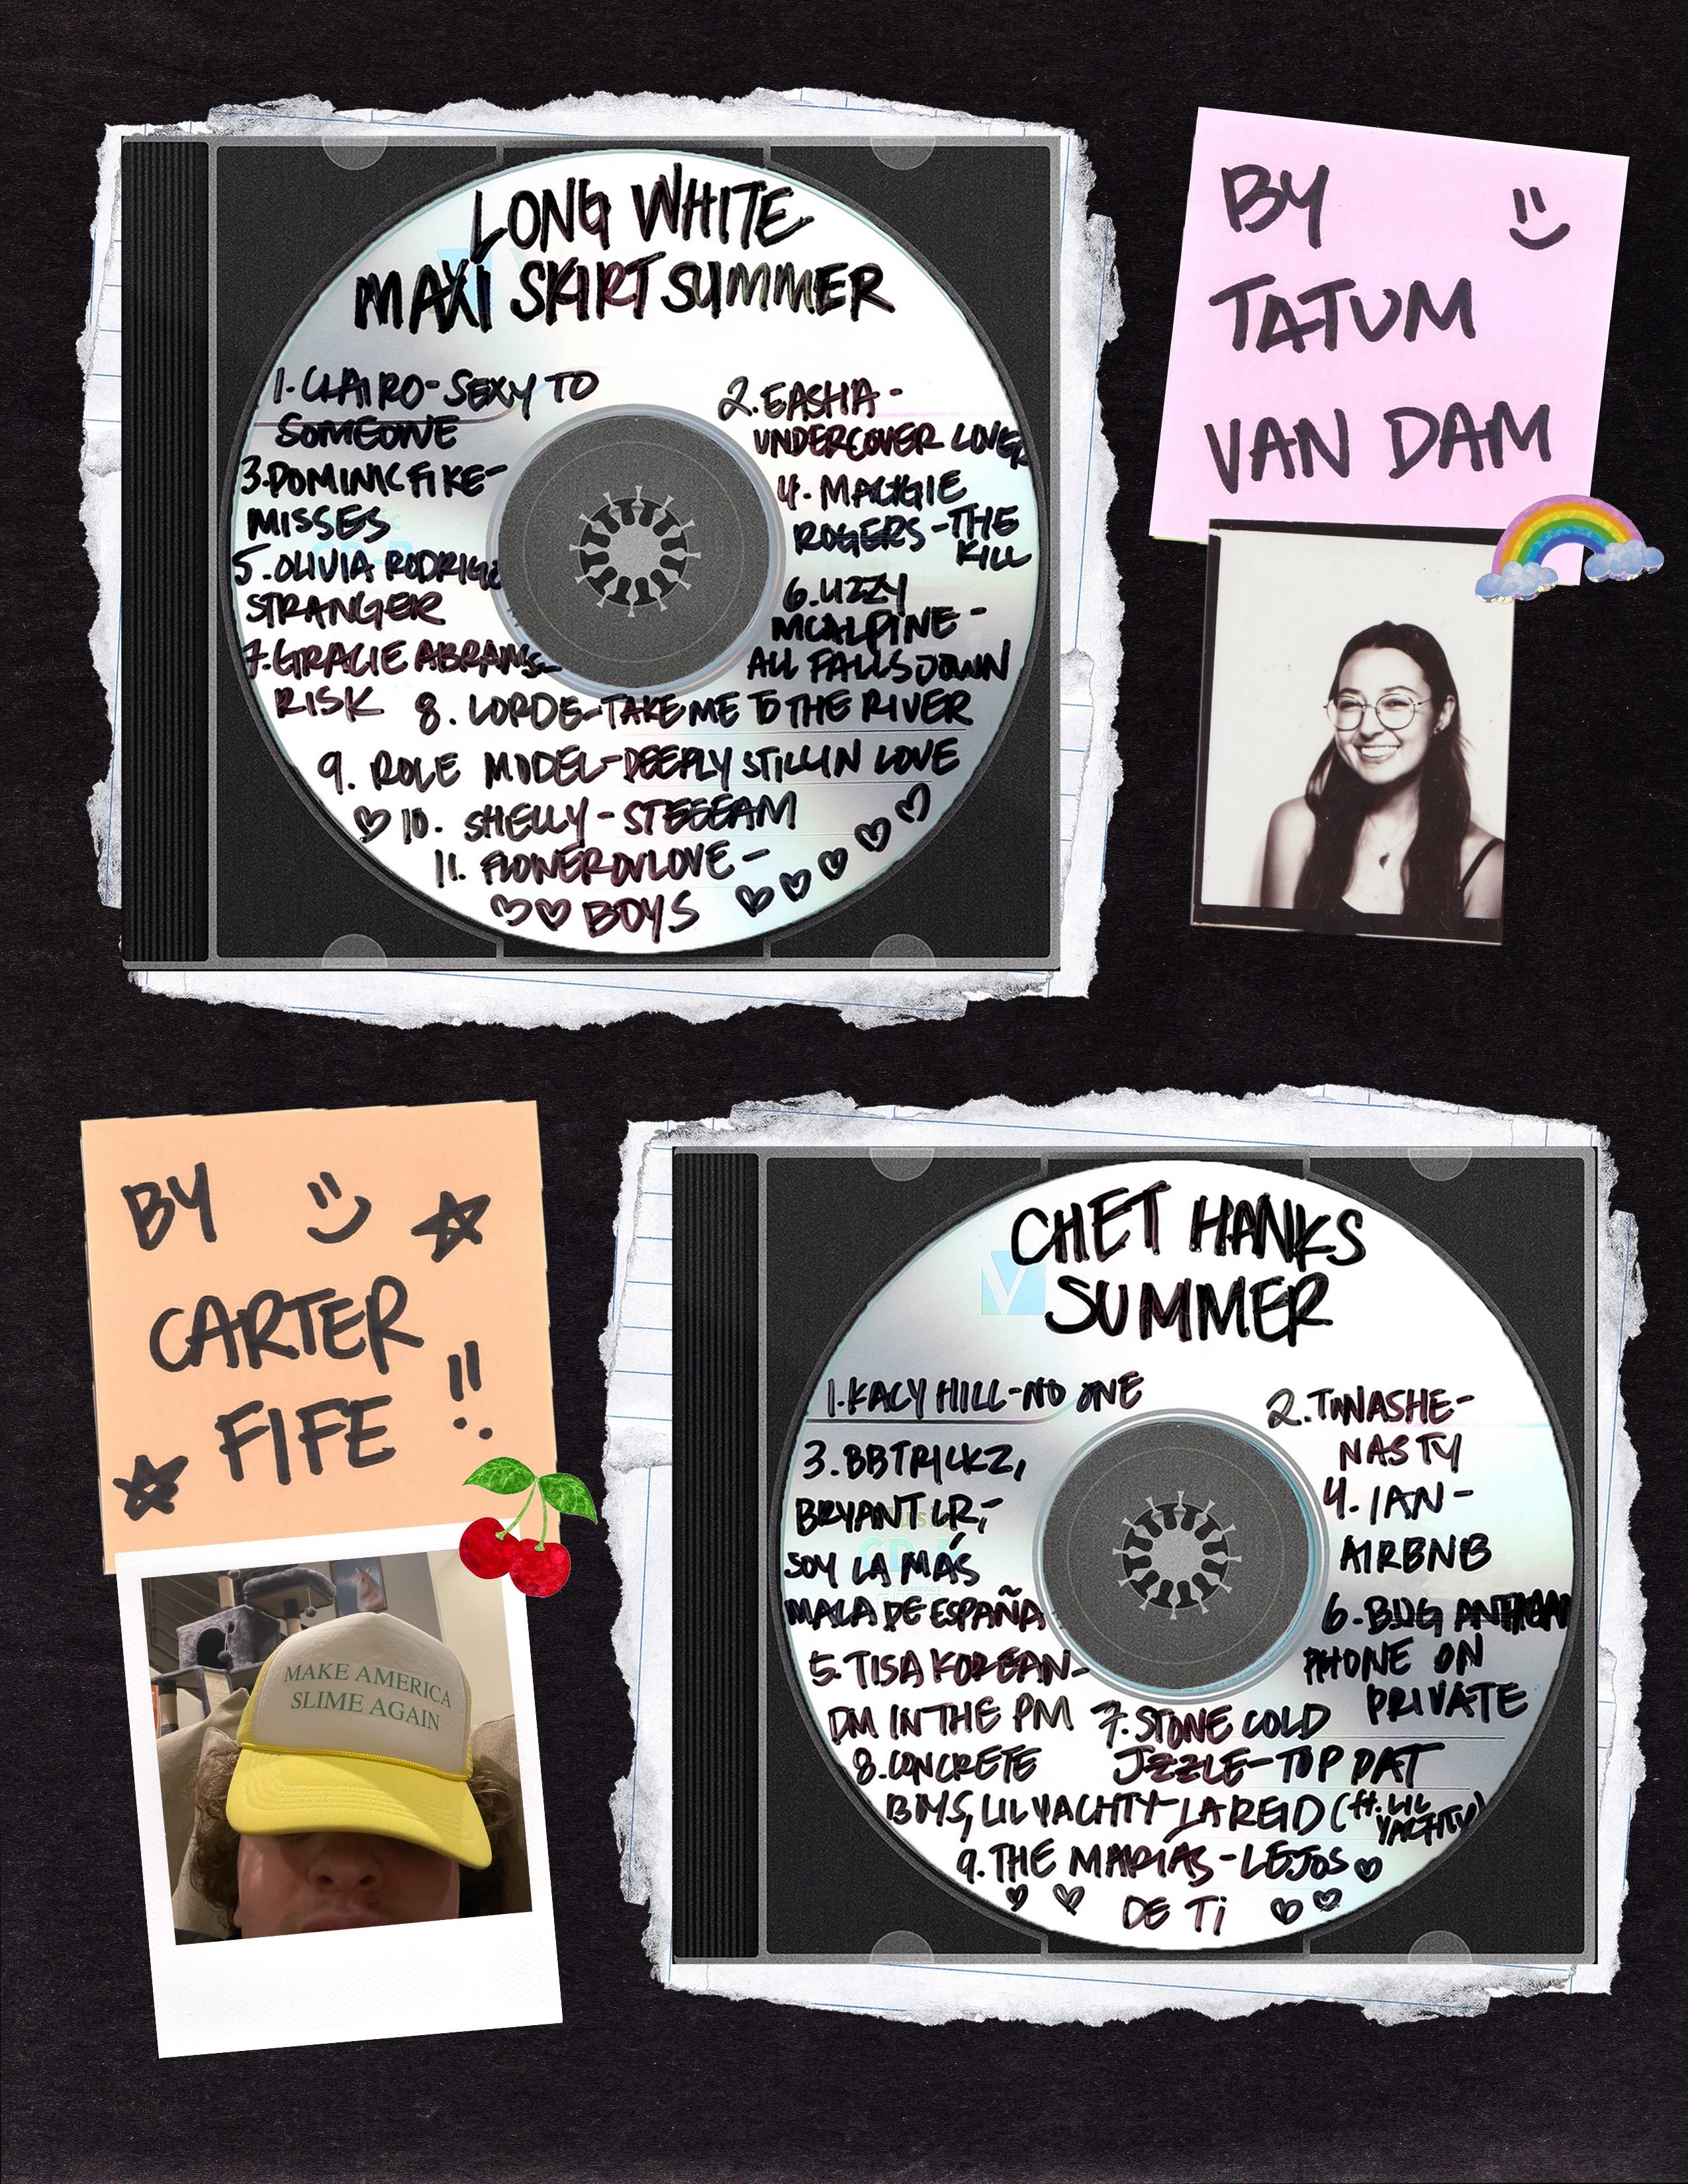 LONG WHITE
MAXI SKIRT SUMMER
1. CLAIRO - SEXY TO
SOMEONE
2. EASHA -
UNDERCOVER LOVER
3. DOMINIC FIKE -
MISSES
4. MAGGIE
ROGERS - THE
KILL
5. OLIVIA RODRIGO
STRANGER
6. LIZZY
MCALPINE -
ALL FALLS DOWN
7. GRACIE ABRAMS -
RISK
8. LORDE - TAKE ME TO THE RIVER
9. ROLE MODEL - DEEPLY STILL IN LOVE
10. SHELLY - STEEEAM
11. FLOWEROVLOVE -
BOYS
BY
TATUM
VAN DAM
BY
CARTER
FIFE !!
MAKE AMERICA
SLIME AGAIN
CHET HANKS
SUMMER
1. KACY HILL - NO ONE
2. TINASHE -
NASTY
3. BBTRICKZ,
BRYANT LR, -
SOY LA MÁS
MALA DE ESPAÑA
4. IAN -
AIRBNB
5. TISAKOREAN -
DM IN THE PM
6. BUG ANTHONY
PHONE ON
PRIVATE
7. STONE COLD
JZZLE - TOP DAT
8. CONCRETE
BOYS, LIL YACHTY - LA REID (ft. LIL
YACHTY)
9. THE MARÍAS - LEJOS
DE TI